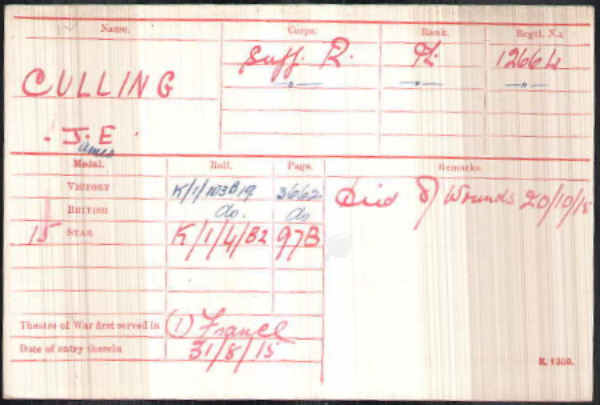 Name. Corps. Rank. Regtl. No.
CULLING Suff. R. Pte 12664
" " "
J. E.
ames
Medal. Roll. Page. Remarks.
VICTORY K/1/103B19 3662 Died of Wounds 20/10/15
BRITISH do. do
15 STAR K/1/4/B2 97B
Theatre of War first served in (1) France
Date of entry therein 31/8/15
K. 1380.